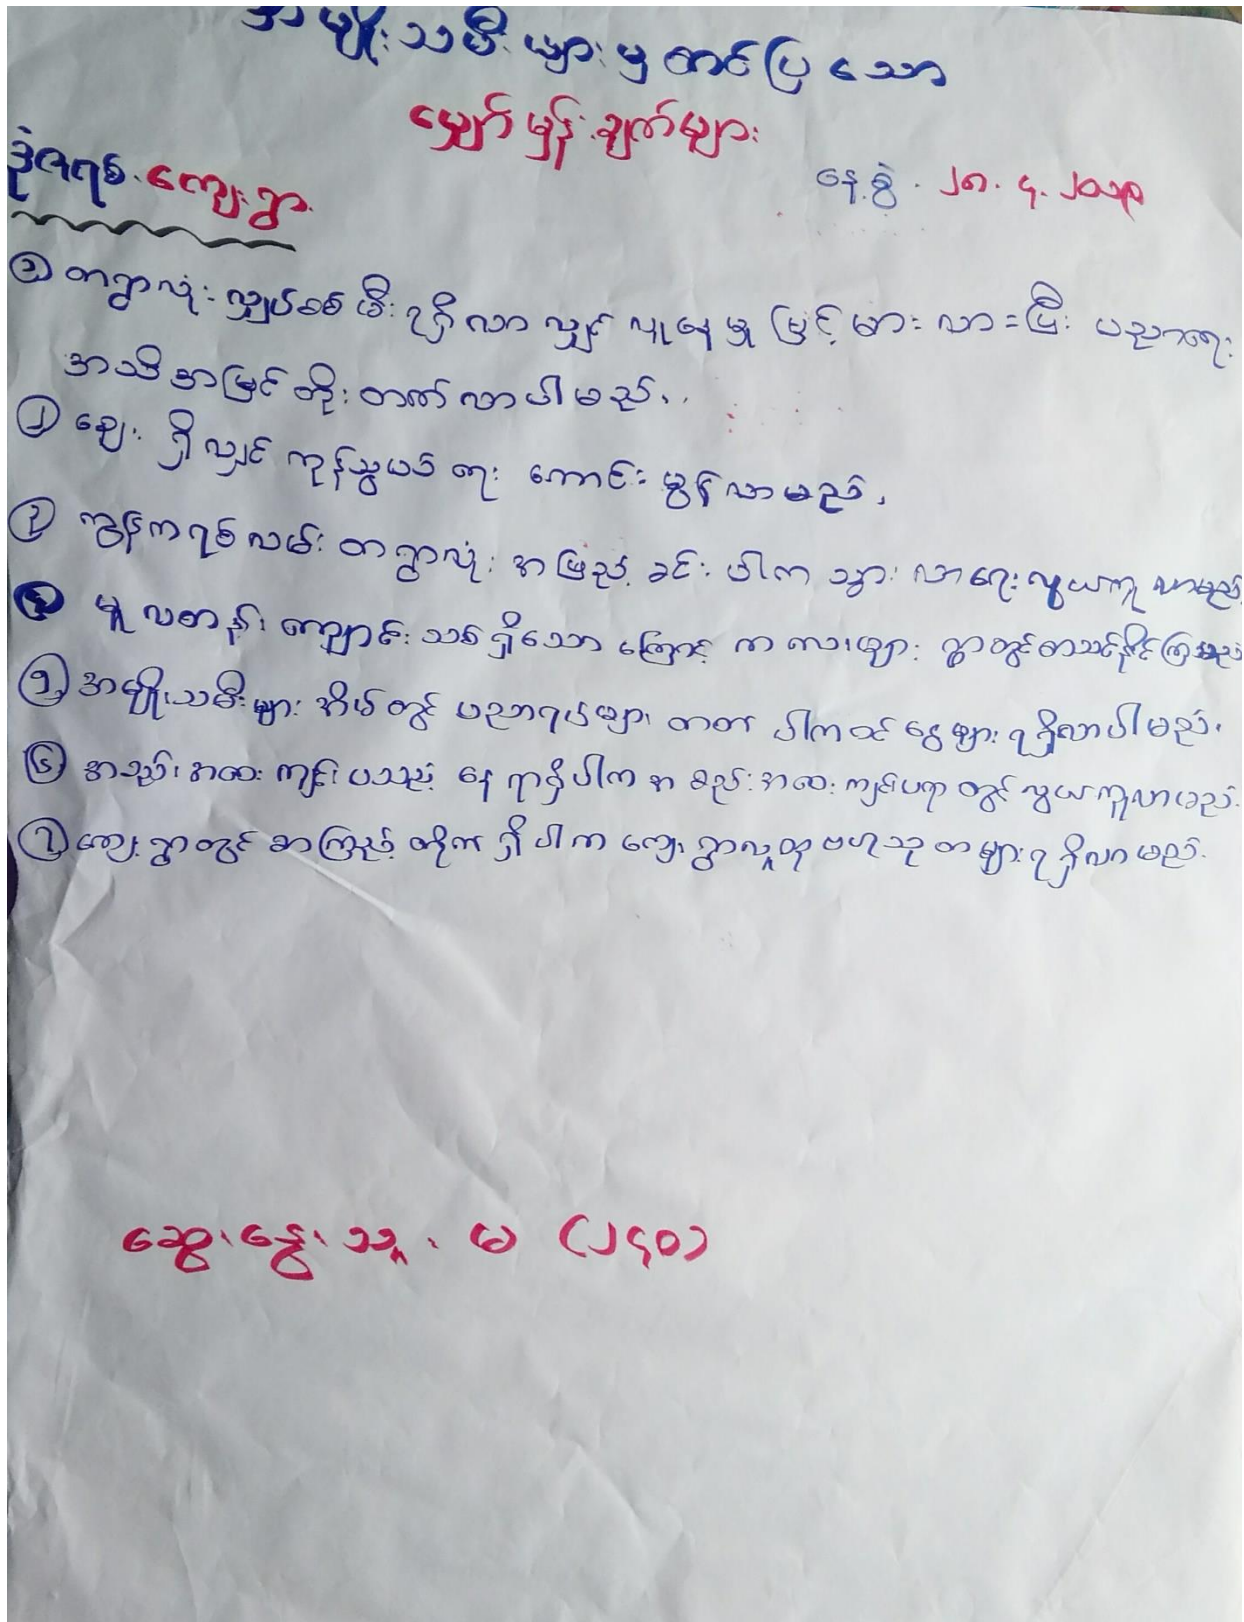 အမျိုးသမီးများမှ တင်ပြသော
မျှော်မှန်းချက်များ
ဒုံဇရစ်.ကျေးရွာ.
နေ့စွဲ. ၂၈.၄.၂၀၁၉
၁ တရွာလုံး လျှပ်စစ်မီးရရှိလာလျှင် လူနေမှု မြင့်မားလာပြီး ပညာရေး
အသိအမြင်တိုးတက်လာပါမည်.
၂ ဈေးရှိလျှင် ကုန်သွယ်ရေး ကောင်းမွန်လာမည်.
၃ ကွန်ကရစ်လမ်း တရွာလုံး အပြည့်ခင်းပါက သွားလာရေးလွယ်ကူလာမည်.
၄ မူလတန်းကျောင်းသစ်ရှိသောကြောင့် ကလေးများ ရွာတွင်စာသင်နိုင်ကြမည်
၅ အမျိုးသမီးများ အိမ်တွင် ပညာရပ်များတတ်ပါကဝင်ငွေများရရှိလာပါမည်.
၆ အစည်းအဝေးကျင်းပသည့်နေရာရှိပါကအစည်းအဝေးကျင်းပရာတွင်လွယ်ကူလာမည်.
၇ ကျေးရွာတွင် စာကြည့်တိုက်ရှိပါက ကျေးရွာလူထုဗဟုသုတများရရှိလာမည်.
ဆွေးနွေးသူ. မ (၂၄၀)